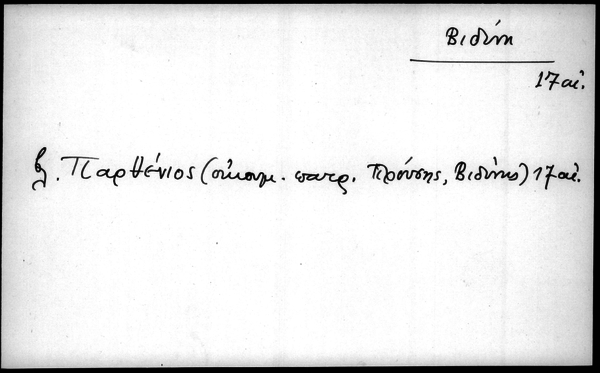 Βιδύνη
17 αἰ.
βλ. Παρθένιος (οἰκουμ. πατρ. Προύσης, Βιδύνης) 17 αἰ.